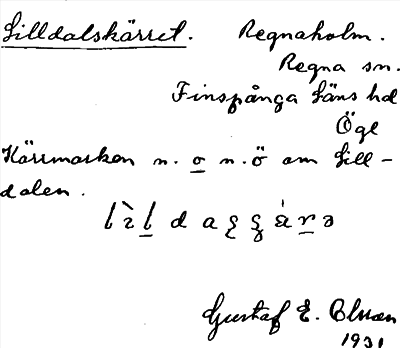 Lilldalskärret. Regnaholm.
Regna sn.
Finspånga läns hd
Ögl
Kärrmarken n. o n.ö om Lill-
dalen.
Gustaf E. Olsson
1931